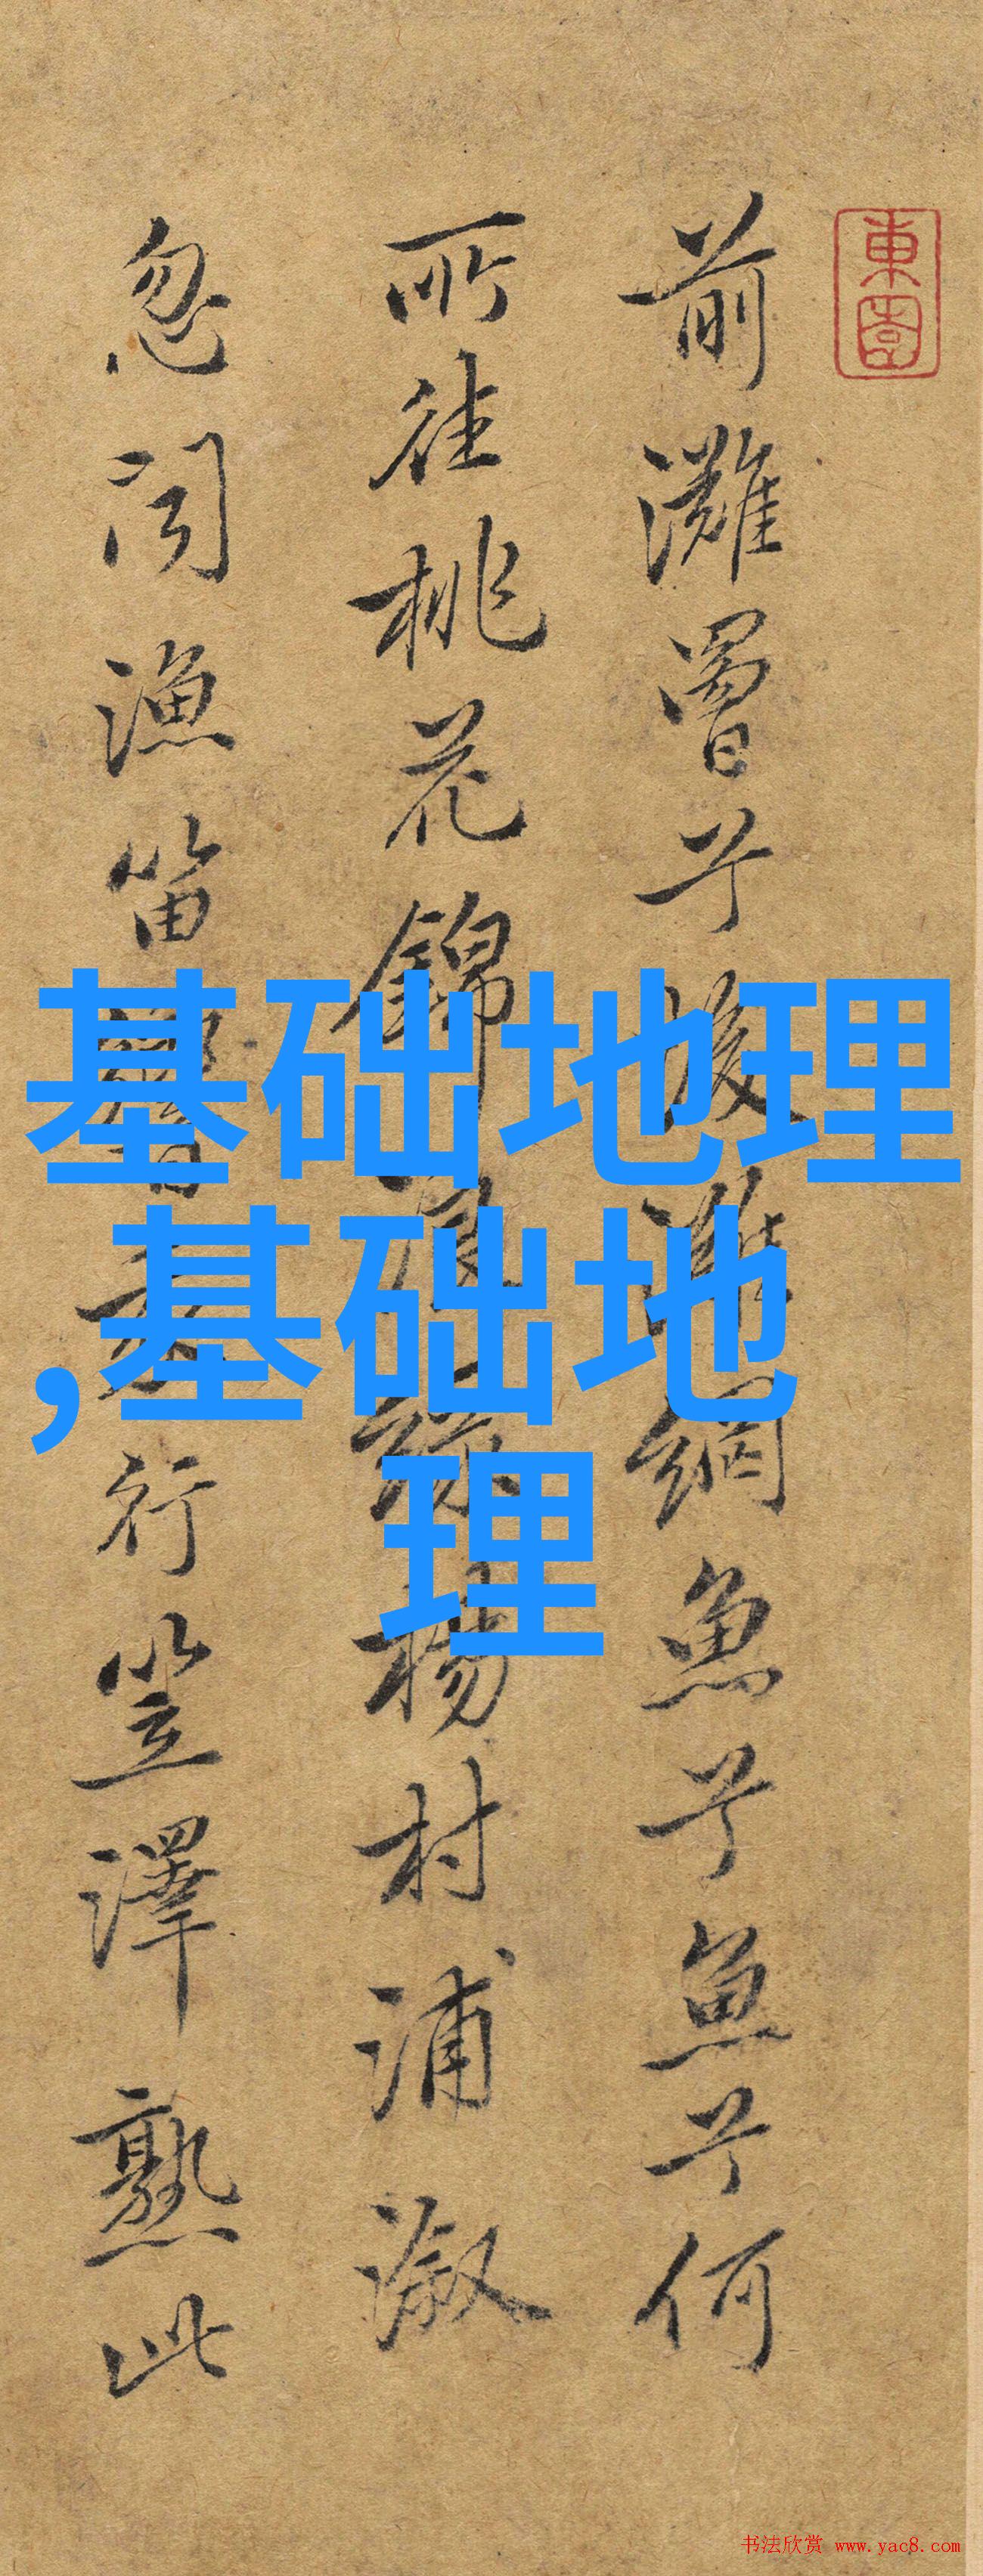 東園
前灘罾子後灘網魚子魚子何
所往桃花錦浪緑楊村浦溆
忽聞漁笛響
行笠澤熟此
基础地理
,基础地
理
书法欣赏 www.yac8.com